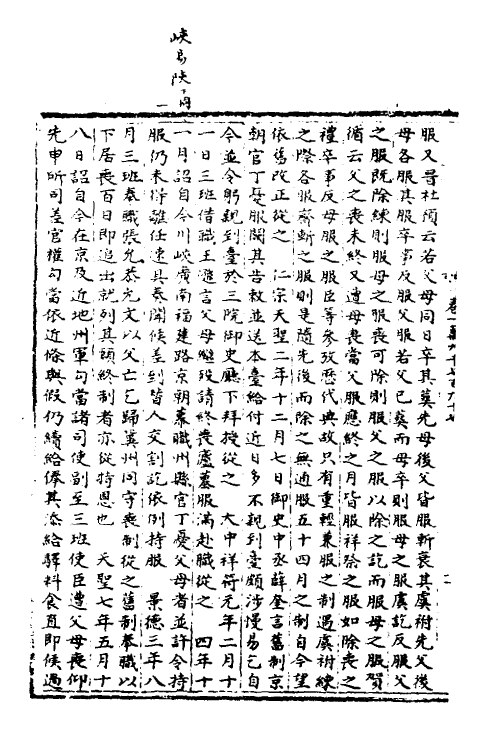 峽多陜下同
服又晉杜預云若父母同日卒其葬先母後父皆服斬衰其虞祔先父後
母各服其服卒事反服父服若父已葬而母卒則服母之服虞訖反服父
之服既除練則服母之服喪可除則服父之服以除之訖而服母之服賀
循云父之喪未終又遭母喪當父服應終之月皆服祥祭之服如除喪之
禮卒事反母服之服臣等參攷歷代典故只有重輕兼服之制遇虞祔練
之際各服齋斬之服則是隨先後而除之無通服五十四月之制自今望
依舊改正從之 仁宗天聖二年十二月七日御史中丞薛奎言舊制京
朝官丁憂服闋其告敕並送本臺給付近日多不親到臺頗涉慢易乞自
今並令躬親到臺於三院御史廳下拜授從之 大中祥符元年二月十
一日三班借職王滙言父母繼歿請終喪廬墓服滿赴職從之 四年十
一月詔自今川峽廣南福建路京朝幕職州縣官丁憂父母者並許令持
服仍未得離任速具奏聞候差到替人交割訖依例持服 景德三年八
月三班奉職張允恭允文以父亡乞歸冀州同守喪制從之舊制奉職以
下居喪百日即追出就列其願終制者亦從特恩也 天聖七年五月十
八日詔自今在京及近地州軍勾當諸司使副至三班使臣遭父母喪仰
先申所司差官權勾當依近條與假仍續給俸其添給驛料食直即候過